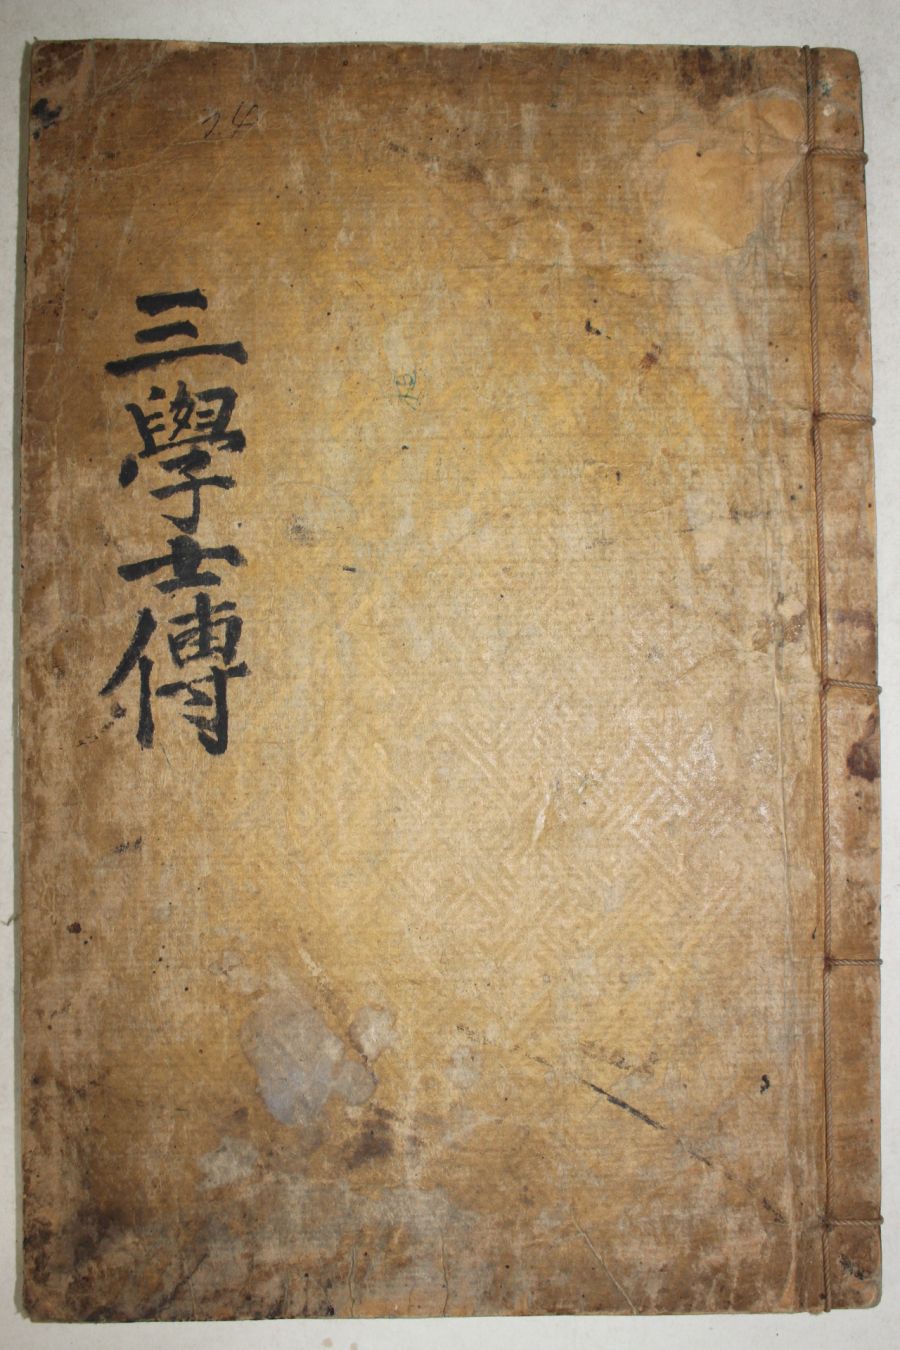 三學士傳